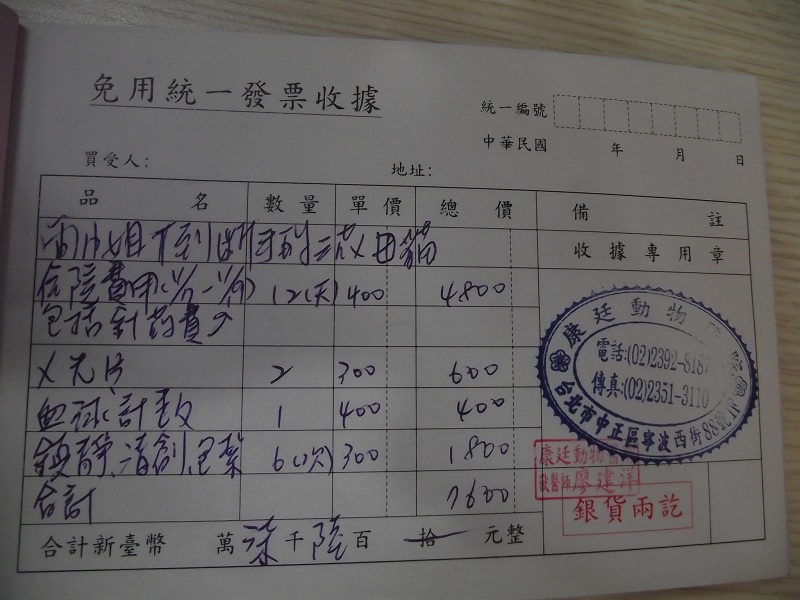 免用統一發票收據
統一編號
中華民國 年 月 日
買受人: 地址:
品名 數量 單價 總價 備註
收據專用章
住院費用 12(天) 400 4800
包括針葯費
X光片 2 300 600
血球計數 1 400 400
鎮靜、清創、包紮 6(次) 300 1800
合計 7600
合計新臺幣 萬 柒 千 陸 百 拾 元整
康廷動物
電話:(02)2392-818
傳真:(02)2351-3110
台北市中正區寧波西街88號
康廷動物
獸醫師 廖建洋
銀貨兩訖